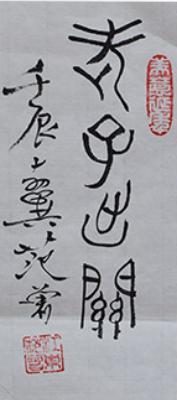 老子出關
壬辰上翼范曾